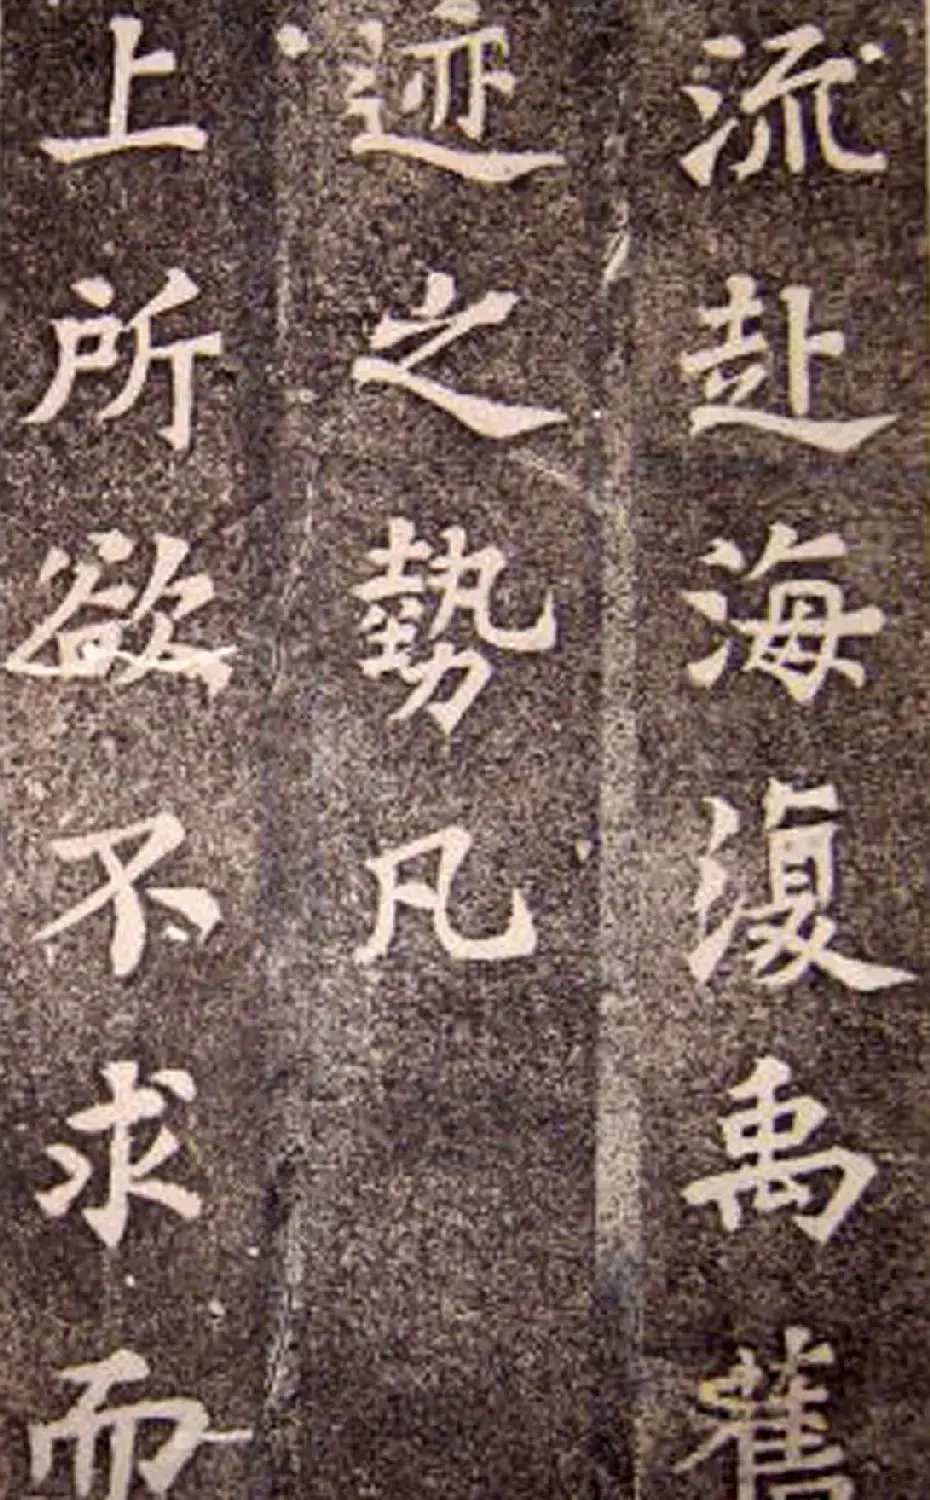 流赴海澓禹舊
迹之勢凡
上所欲不求而